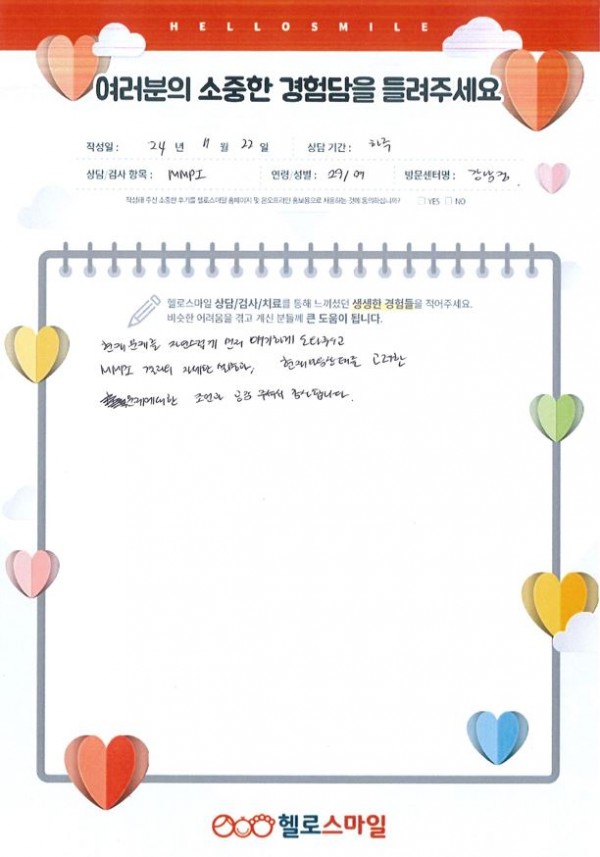 HELLOSMILE
여러분의 소중한 경험담을 들려주세요
작성일 : 24 년 11 월 22 일 상담 기간 : 하루
상담/검사 항목 : MMPI 연령/성별 : 29/ 방문센터명 : 강남점
작성해 주신 소중한 후기를 헬로스마일 홈페이지 및 온오프라인 홍보용으로 사용하는 것에 동의하십니까? YES NO
헬로스마일 상담/검사/치료를 통해 느끼셨던 생생한 경험들을 적어주세요.
비슷한 어려움을 겪고 계신 분들께 큰 도움이 됩니다.
현재 문제를 자연스럽게 먼저 얘기하게 도와주시고
MMPI 검사의 자세한 설명과, 현재 상태를 고려한
문제에 대한 조언과 공감 주셔서 감사합니다.
헬로스마일